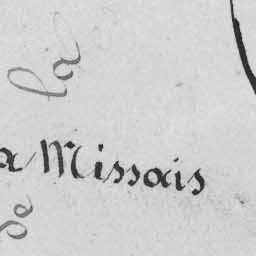 la
a Missais
de